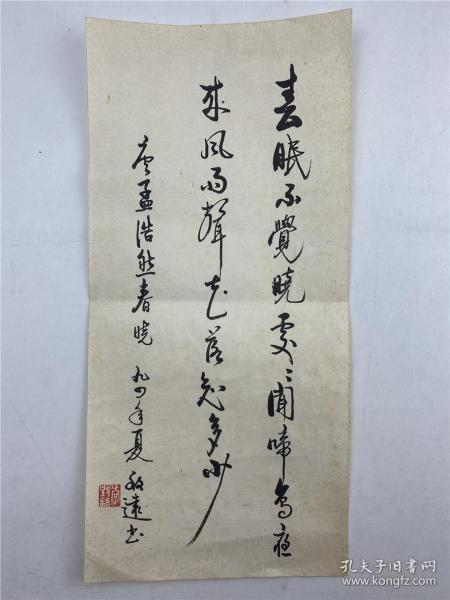 春眠不覺曉處々聞啼鳥夜
來風雨聲花落知多少
唐孟浩然春曉 九四年夏 遠书
孔夫子旧书网
www.kongfz.com